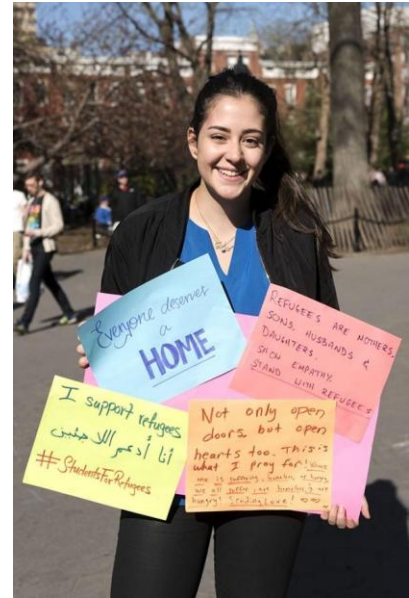 Everyone deserves
a
HOME
REFUGEES ARE MOTHERS,
SONS, HUSBANDS &
DAUGHTERS.
SHOW EMPATHY.
STAND WITH REFUGEES
I support refugees
أنا أدعم اللاجئين
#StudentsForRefugees
Not only open
doors but open
hearts too. This is
what I pray for!
one is suffering,
we all suffer,
hungry! Sending love!